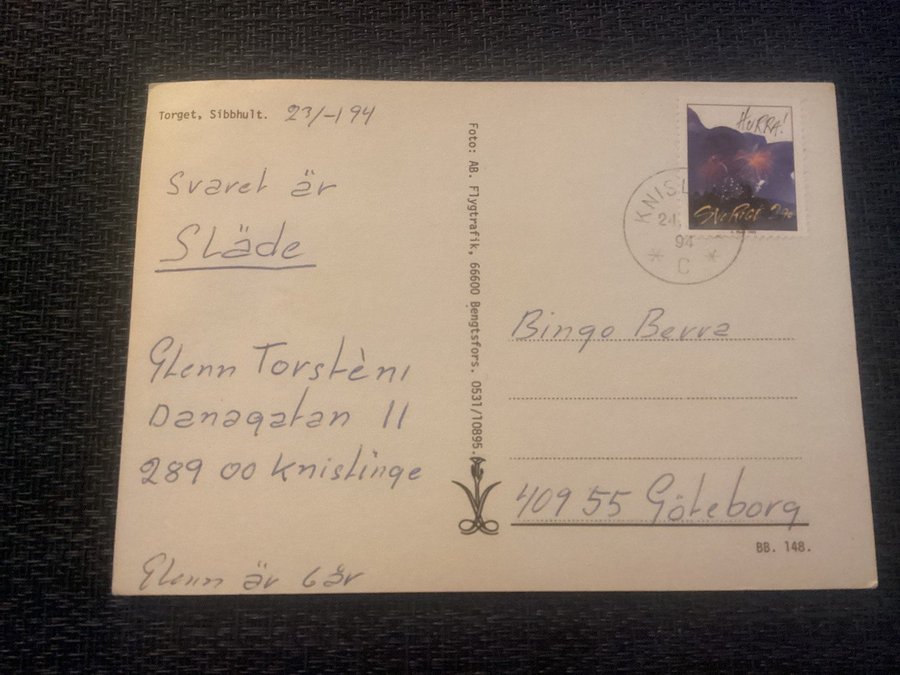 Torget, Sibbhult. 23/-1 94
Svaret är
Släde
Glenn Torstèni
Danagatan 11
289 00 Knislinge
Glenn är 6 år
Foto: AB. Flygtrafik, 66600 Bengtsfors. 0531/10895.
HURRA!
Sverige
KNISL
24
94
C
Bingo Berra
409 55 Göteborg
BB. 148.